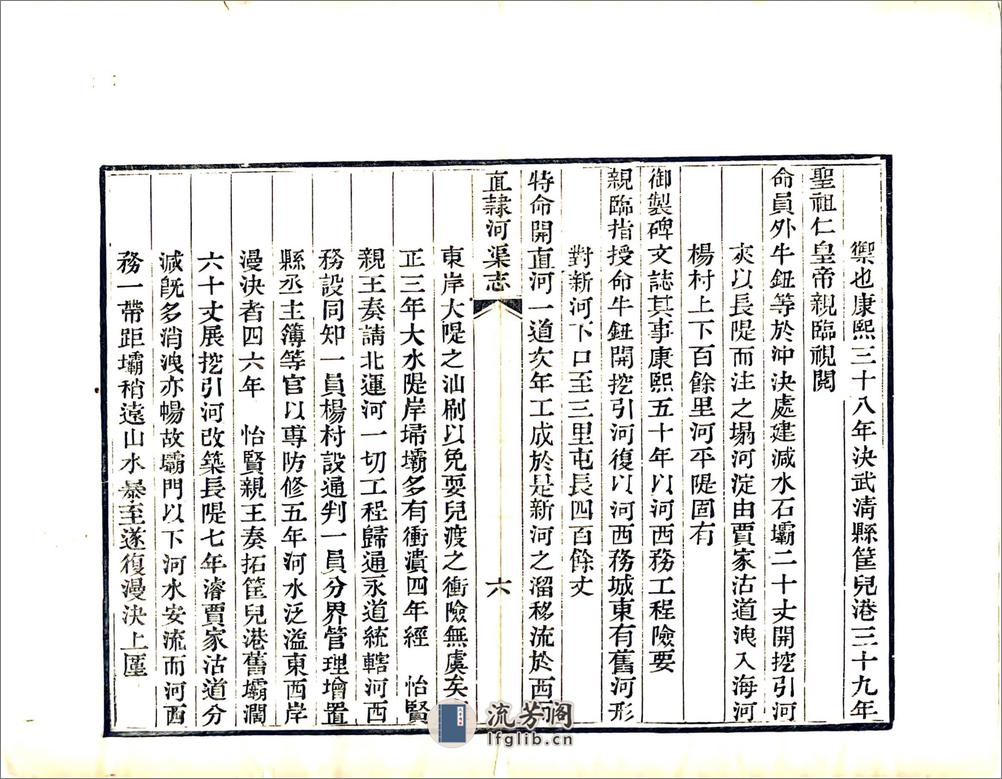 禦也康熙三十八年決武清縣筐兒港三十九年
聖祖仁皇帝親臨視閱
命員外牛鈕等於沖決處建減水石壩二十丈開挖引河
夾以長隄而注之塌河淀由賈家沽道洩入海河
楊村上下百餘里河平隄固有
御製碑文誌其事康熙五十年以河西務工程險要
親臨指授命牛鈕開挖引河復以河西務城東有舊河形
對新河下口至三里屯長四百餘丈
特命開直河一道次年工成於是新河之溜移流於西
直隸河渠志
六
東岸大隄之汕刷以免耍兒渡之衝險無虞矣
正三年大水隄岸埽壩多有衝潰四年經 怡賢
親王奏請北運河一切工程歸通永道統轄河西
務設同知一員楊村設通判一員分界管理增置
縣丞主簿等官以專防修五年河水泛溢東西岸
漫決者四六年 怡賢親王奏拓筐兒港舊壩濶
六十丈展挖引河改築長隄七年濬賈家沽道分
減旣多消洩亦暢故壩門以下河水安流而河西
務一帶距壩稍遠山水暴至遂復漫決上厪
流芳阁
lfglib.cn